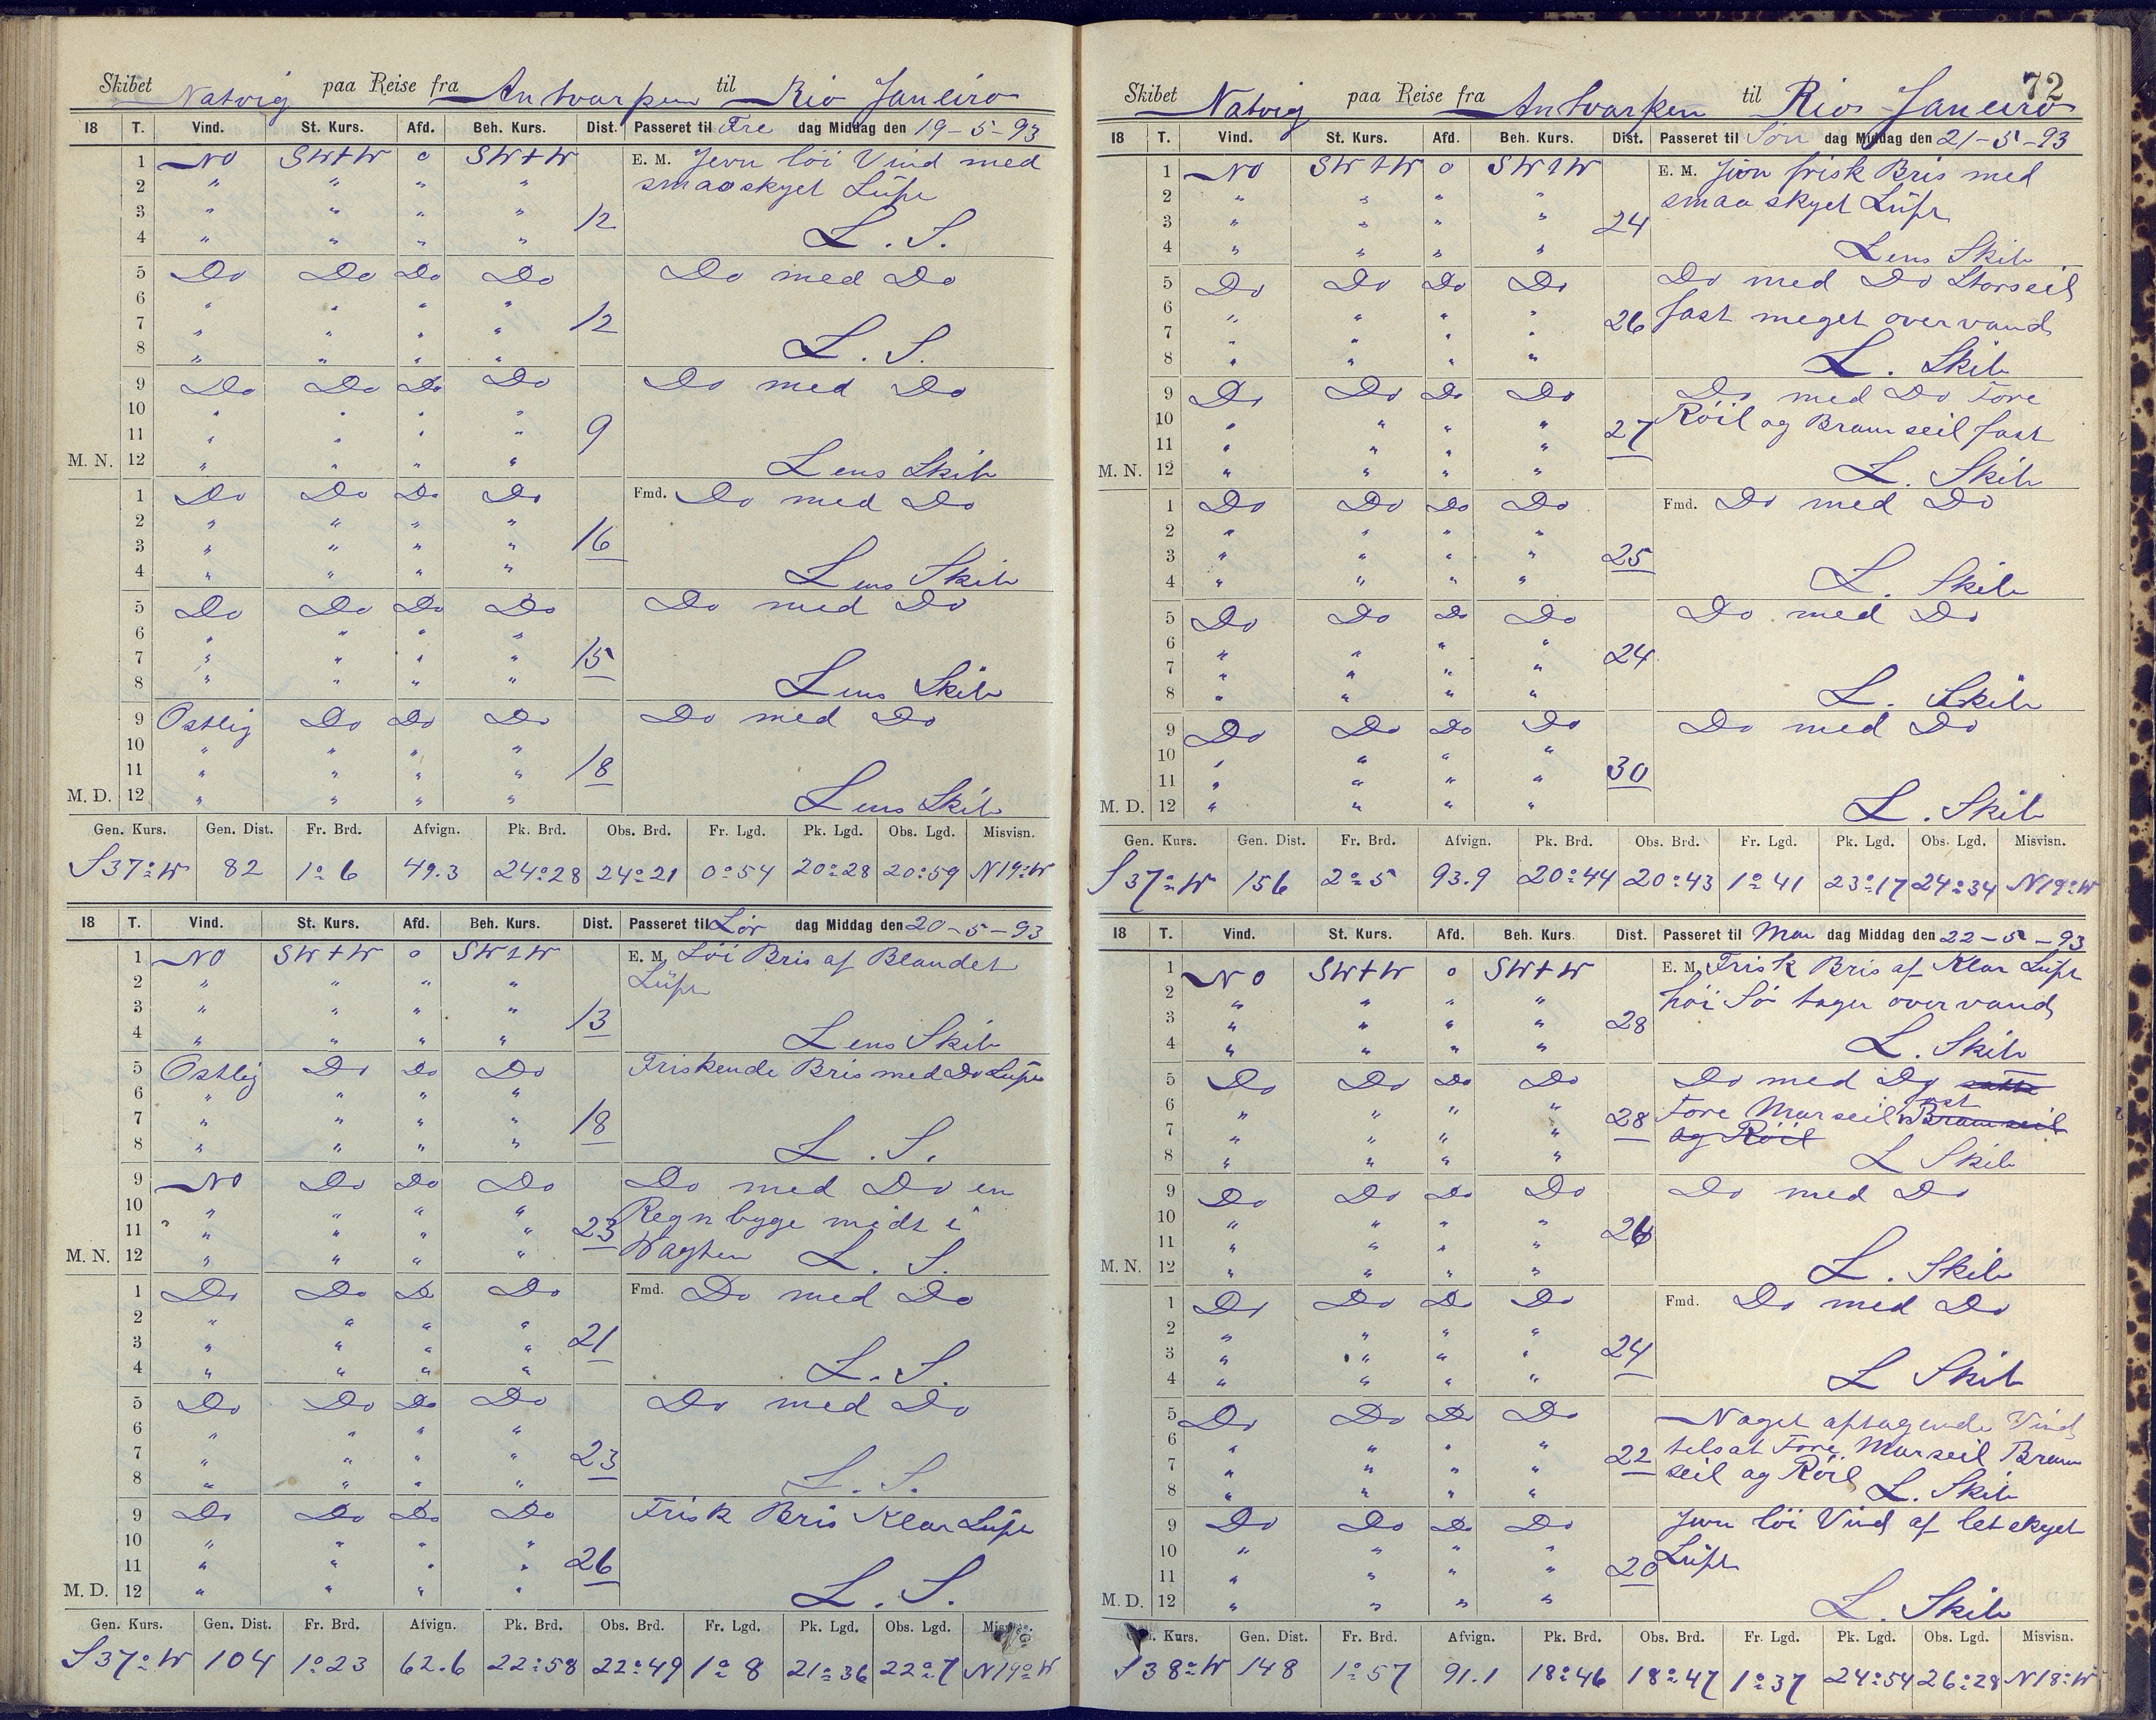 Skibet Natvig paa Reise fra Antvarpen til Rio Janeiro
18 T. Vind. St. Kurs. Afd. Beh. Kurs. Dist. Passeret til Fre dag Middag den 19-5-93
1 NO SWtW o SWtW E. M. Jevn löi Vind med
2 " " " " smaaskyet Lüft
3 " " " " 12
4 " " " " L. S.
5 Do Do Do Do Do med Do
6 " " " "
7 " " " " 12
8 " " " " L. S.
9 Do Do Do Do Do med Do
10 " " " "
11 " " " " 9
M. N. 12 " " " " Lens Skib
1 Do Do Do Do Fmd. Do med Do
2 " " " "
3 " " " " 16
4 " " " " Lens Skib
5 Do Do Do Do Do med Do
6 " " " "
7 " " " " 15
8 " " " " Lens Skib
9 Ostlig Do Do Do Do med Do
10 " " " "
11 " " " " 18
M. D. 12 " " " " Lens Skib
Gen. Kurs. Gen. Dist. Fr. Brd. Afvign. Pk. Brd. Obs. Brd. Fr. Lgd. Pk. Lgd. Obs. Lgd. Misvisn.
S37°W 82 1°6 49.3 24°28 24°21 0°54 20°28 20°59 N19°W
18 T. Vind. St. Kurs. Afd. Beh. Kurs. Dist. Passeret til Lör dag Middag den 20-5-93
1 NO SWtW o SWtW E. M. Löi Bris af Blandet
2 " " " " Lüft
3 " " " " 13
4 " " " " Lens Skib
5 Ostlig Do Do Do Friskende Bris med Do Lüft
6 " " " "
7 " " " " 18
8 " " " " L. S.
9 NO Do Do Do Do med Do en
10 " " " " Regnbyge midt i
11 " " " " 23 Vagten L. S.
M. N. 12 " " " "
1 Do Do Do Do Fmd. Do med Do
2 " " " "
3 " " " " 21
4 " " " " L. S.
5 Do Do Do Do Do med Do
6 " " " "
7 " " " " 23
8 " " " " L. S.
9 Do Do Do Do Frisk Bris Klar Lüft
10 " " " "
11 " " " " 26
M. D. 12 " " " " L. S.
Gen. Kurs. Gen. Dist. Fr. Brd. Afvign. Pk. Brd. Obs. Brd. Fr. Lgd. Pk. Lgd. Obs. Lgd.
S37°W 104 1°23 62.6 22°58 22°49 1°8 21°36 22°7 N19°W
72
Skibet Natvig paa Reise fra Antvarpen til Rio Janeiro
18 T. Vind. St. Kurs. Afd. Beh. Kurs. Dist. Passeret til Søn dag Middag den 21-5-93
1 NO SWtW o SWtW E. M. Jevn frisk Bris med
2 " " " " smaa skyet Lüft
3 " " " " 24
4 " " " " Lens Skib
5 Do Do Do Do Do med Do Storseil
6 " " " " 26 fast meget overvand
7 " " " "
8 " " " " L. Skib
9 Do Do Do Do Do med Do Fore
10 " " " " 27 Röil og Bramseil fast
11 " " " "
M. N. 12 " " " " L. Skib
1 Do Do Do Do Fmd. Do med Do
2 " " " "
3 " " " " 25
4 " " " " L. Skib
5 Do Do Do Do Do med Do
6 " " " "
7 " " " " 24
8 " " " " L. Skib
9 Do Do Do Do Do med Do
10 " " " "
11 " " " " 30
M. D. 12 " " " " L. Skib
Gen. Kurs. Gen. Dist. Fr. Brd. Afvign. Pk. Brd. Obs. Brd. Fr. Lgd. Pk. Lgd. Obs. Lgd. Misvisn.
S37°W 156 2°5 93.9 20°44 20°43 1°41 23°17 24°34 N19°W
18 T. Vind. St. Kurs. Afd. Beh. Kurs. Dist. Passeret til Man dag Middag den 22-5-93
1 NO SWtW o SWtW E. M. Frisk Bris af Klar Lüft
2 " " " " höi Sö tager overvand
3 " " " " 28
4 " " " " L. Skib
5 Do Do Do Do Do med Do satte
6 " " " " 28 Fore Marseil fast Bramseil
7 " " " " og Röil
8 " " " " L Skib
9 Do Do Do Do Do med Do
10 " " " " 26
11 " " " "
M. N. 12 " " " " L. Skib
1 Do Do Do Do Fmd. Do med Do
2 " " " "
3 " " " " 24
4 " " " " L Skib
5 Do Do Do Do Noget aftagende Vind
6 " " " " 22 tilsat Fore Marseil Bram
7 " " " " seil og Röil L. Skib
8 " " " "
9 Do Do Do Do Jevn löi Vind af letskyet
10 " " " " Lüft
11 " " " " 20
M. D. 12 " " " " L. Skib
Kurs. Gen. Dist. Fr. Brd. Afvign. Pk. Brd. Obs. Brd. Fr. Lgd. Pk. Lgd. Obs. Lgd. Misvisn.
S38°W 148 1°57 91.1 18°46 18°47 1°37 24°54 26°28 N18°W